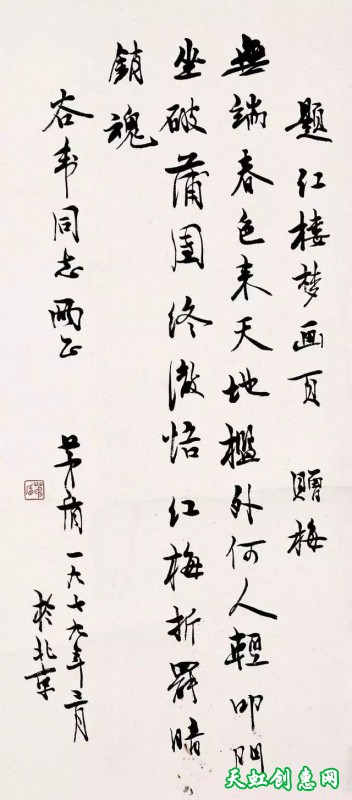 题红楼梦画页 赠梅
無端春色来天地檻外何人輕叩門
坐破蒲團终徹悟红梅折罷暗
銷魂
谷韦同志両正
茅盾一九七九年二月
於北京
天虹创惠网